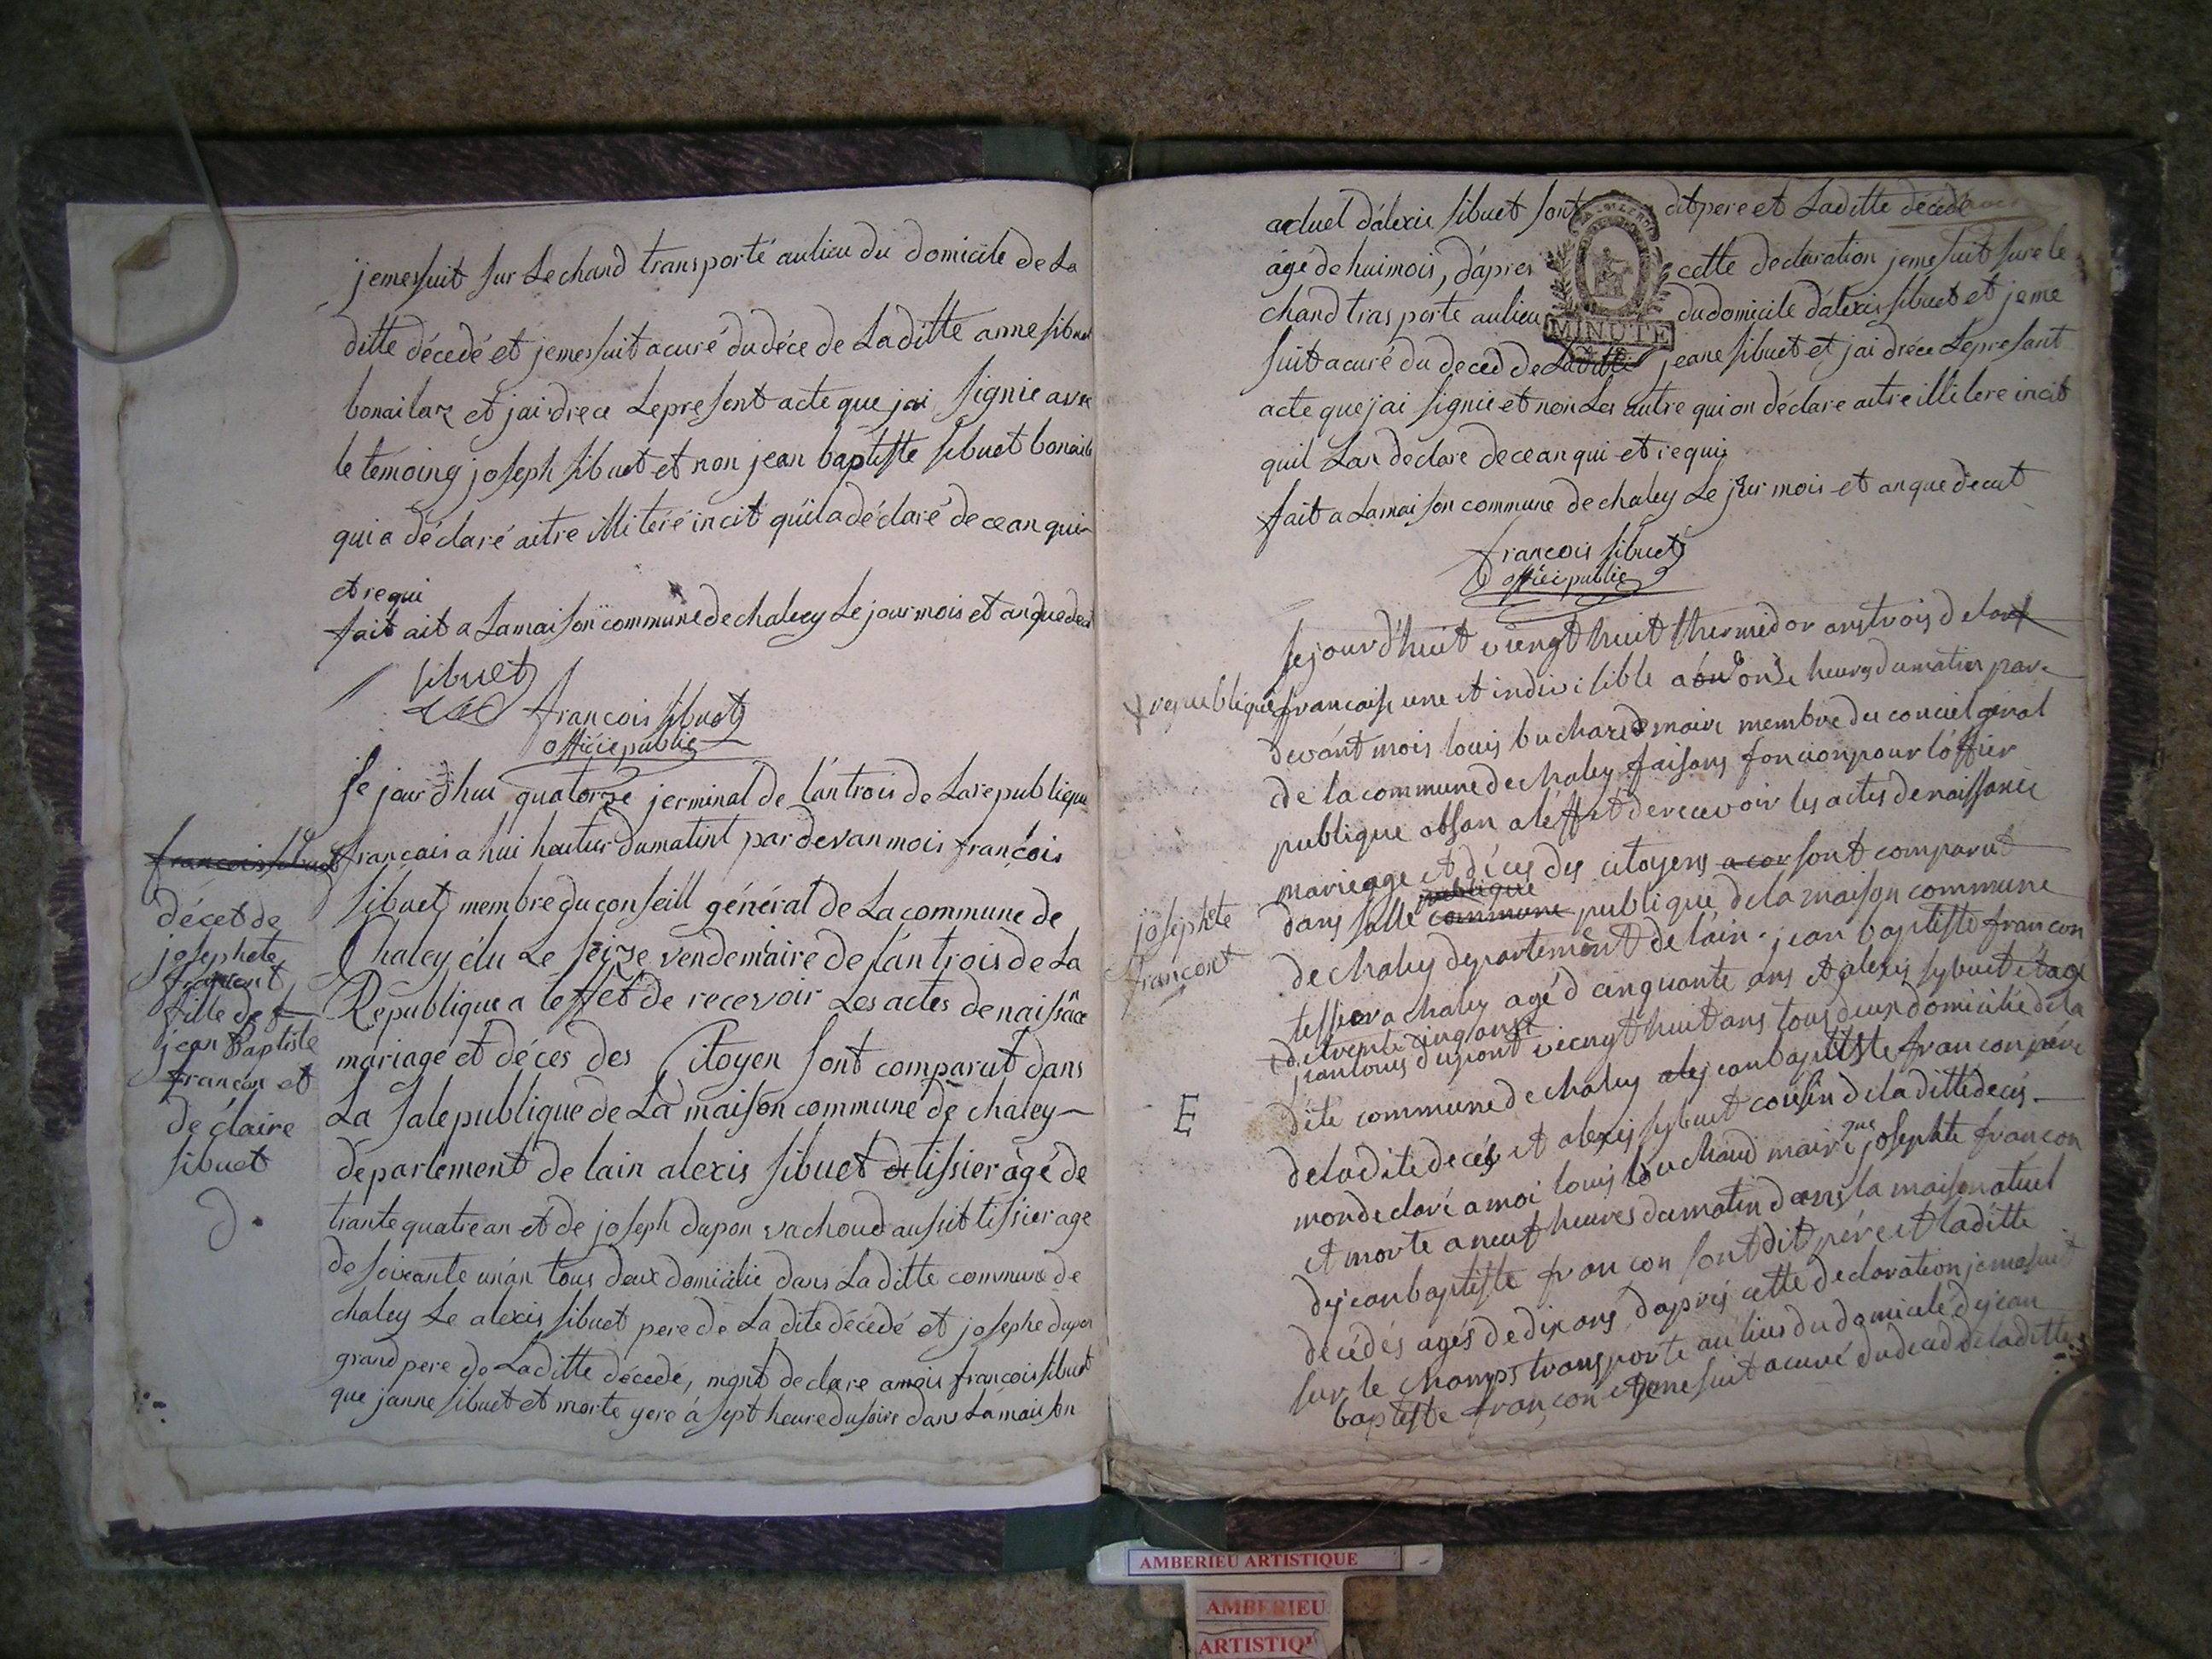 jemesuit sur Le chand transporté aulieu du domicile de La
ditte décedé et jemesuit acuré dudéce de Laditte anne sibuet
bonailar et jai drece Lepresent acte que jai signie avec
le témoing joseph sibuet et non jean baptiste sibuet bonaila
qui a déclaré aitre illiteré incit quila déclaré de ce an qui
et requi
fait ait a Lamaison commune de chaley Le jour mois et an que
sibuet
francois sibuet
officie public
Se jourd'hui quatorze jerminal de l'an trois de La republique
francais a hui heur du matint par devan mois francois
sibuet membre du conseill général de La commune de
Chaley élu Le seize vendemiaire de l'an trois de La
Republique a leffet de recevoir Les actes de naissace
mariage et déces des Citoyen sont comparut dans
La sale publique de La maison commune de chaley
departement de lain alexis sibuet tissier àgé de
trante quatre an et de joseph dupon vachoud aussit tissier age
de soixante un an tous deux domicilie dans La ditte commune de
chaley Le alexis sibuet pere de La dite décédé et josephe dupon
grand pere de Laditte décede, mont declare a mois francois sibuet
que janne sibuet et morte yere à sept heure du soire dans La maison
francois sibuet
décet de
josephete
francont
fille de
jean Baptiste
francon et
de claire
sibuet
D.
actuel d'alexis sibuet sont dit pere et Laditte décedé
âgé de hui mois, d'apres cette declaration jeme suit sure le
chand trasporte aulieu du domicile d'alexis sibuet et jeme
MINUTE
suit acuré du deced de Laditte jeane sibuet et jai dréce Lepresant
acte que jai signie et non Les autre qui on déclare aitre illitere incit
quil Lan declare de ce an qui et requi
fait a Lamaison commune de chaley Le jour mois et an que decut
francois sibuet
officie public
Sejourd'huit viengt huit thermidor ans trois de la
republique francaise une et indivisible a onze heures du matin par
devant mois louis buchard maire membre du conciel genal
de la commune de chaley faisans foncion pour l'offier
publique absan a leffet de recevoir les actes de naissance
marieage et déces des citoyens sont comparut
publique
dans salle commune publique de la maison commune
de chaley departement de lain. jean baptiste francon
tessier a chaley agé d cinquante ans et alexis sybuet étage
de trente cinq ans
jean louis dupont viengt huit ans tous deux domicilié de la
dite commune de chaley jean baptiste francon pere
de la dite decés et alexis sybuet cousin de la ditte decés
mon declaré a moi louis buchard maire que josephte francon
et morte a neuf heures du matin dans la maison atuel
de jean baptiste francon sont dit pére et la ditte
decédés agés de dix ans d'aprés cette declaration jemesuit
sur le champs transporte au lieu du domicile de jean
baptiste francon et jeme suit acuré du deced de la ditte
josephte
francont
E
AMBERIEU ARTISTIQUE
AMBERIEU
ARTISTIQ